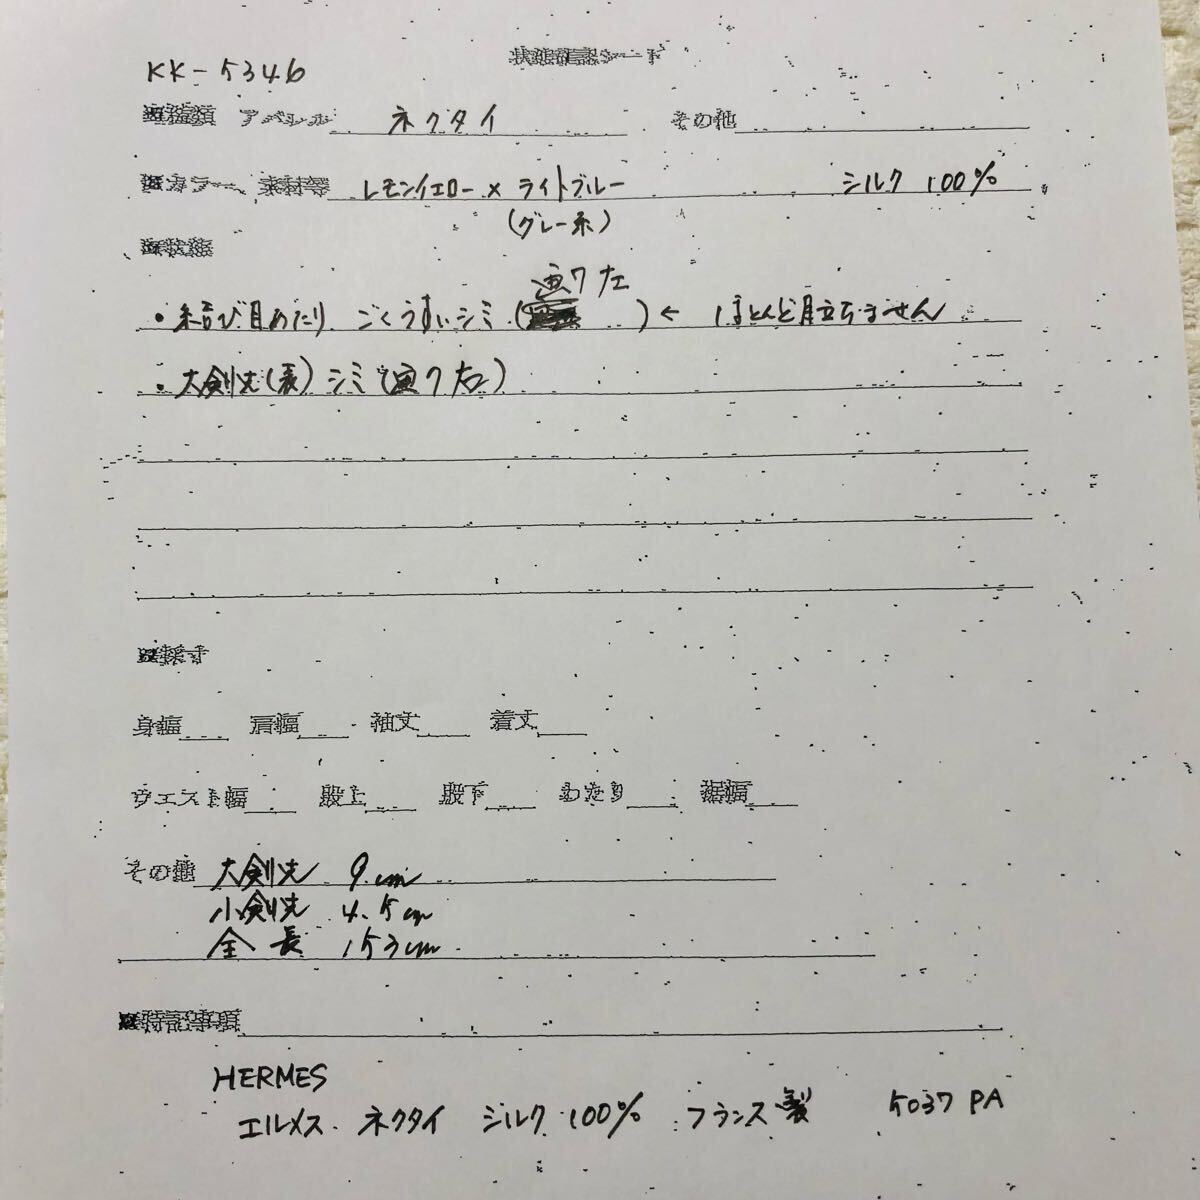 状態確認シート
KK-5346
種類 アパレル ネクタイ その他
カラー、素材等 レモンイエロー×ライトブルー シルク 100%
(グレー系)
状態
・結び目あたり ごくうすいシミ( 画7左 )← ほとんど目立ちません
・大剣先(表)シミ(画7右)
採寸
身幅 肩幅 袖丈 着丈
ウエスト幅 股上 股下 わたり 裾幅
その他 大剣先 9cm
小剣先 4.5cm
全長 153cm
特記事項
HERMES
エルメス ネクタイ シルク 100% フランス製 5037 PA